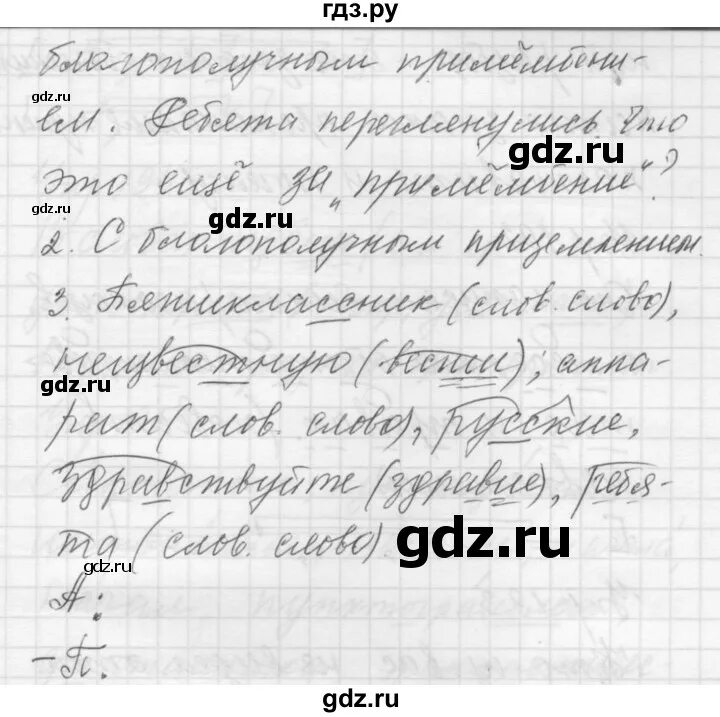 гдз.ру
благополучным прилёмбени-
ем. Ребята переглянулись. Что
gdz.ru
gdz.ru
это ещё за „прилёмбение"?
gdz.ru
gdz.ru
2. С благополучным приземлением.
3. Пятиклассник (слов. слово),
неизвестную (вести); аппа-
gdz.ru
gdz.ru
рат (слов. слово), русские,
здравствуйте (здравие), ребя-
gdz.ru
та (слов. слово).
gdz.ru
А:
- П.
gdz.ru